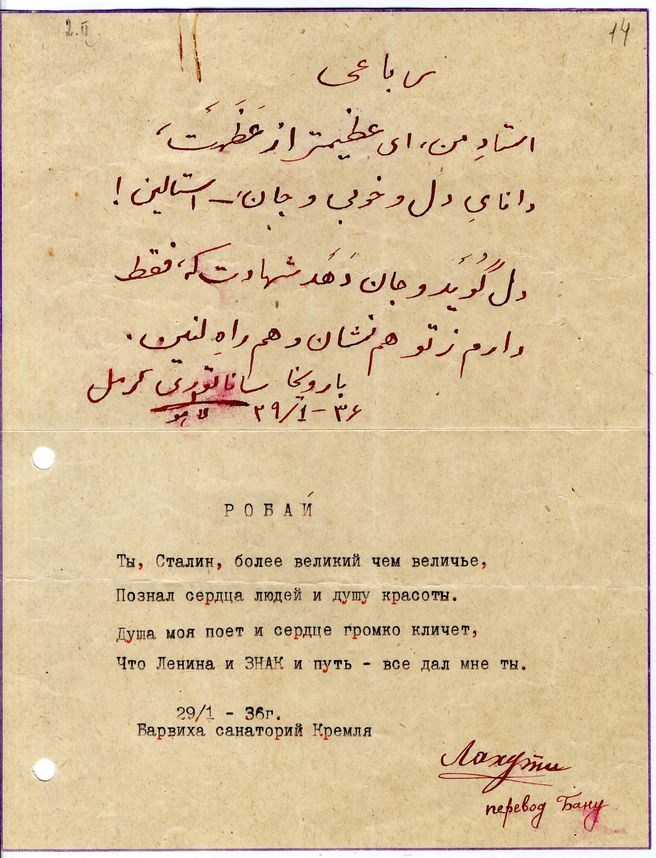 2.II
14
رباعی
استادِ من، ای عظیمتر از عَظَمَت،
دانایِ دل و خوبی و جان، ـ استالین!
دل گُویَد و جان دَهَد شهادت که، فقط
دارم ز تو هم نشان و هم راهِ لنین.
بارویخا ساناتوری کرمل
۲۹/I – ۳۶
РОБАЙ
Ты, Сталин, более великий чем величье,
Познал сердца людей и душу красоты.
Душа моя поет и сердце громко кличет,
Что Ленина и ЗНАК и путь - все дал мне ты.
29/1 - 36г.
Барвиха санаторий Кремля
Лахути
перевод Бану